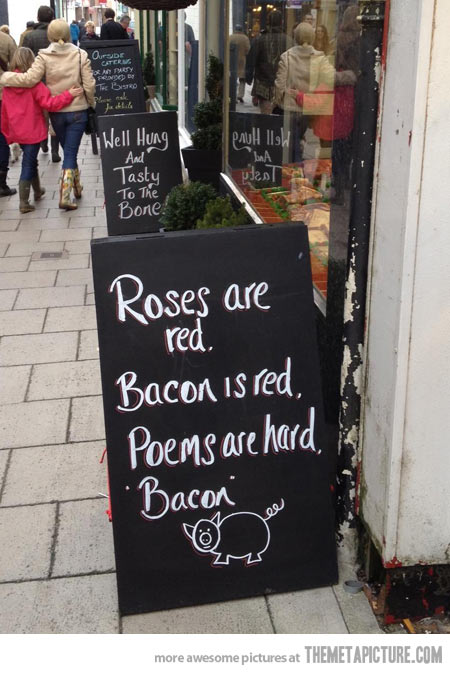 Outside
catering
for any
party
provided by
The Bistro
Please ask
for details
Well Hung
And
Tasty
To The
Bone
Well Hung
And
Tasty
Roses are
red.
Bacon is red.
Poems are hard.
"Bacon"
more awesome pictures at THEMETAPICTURE.COM